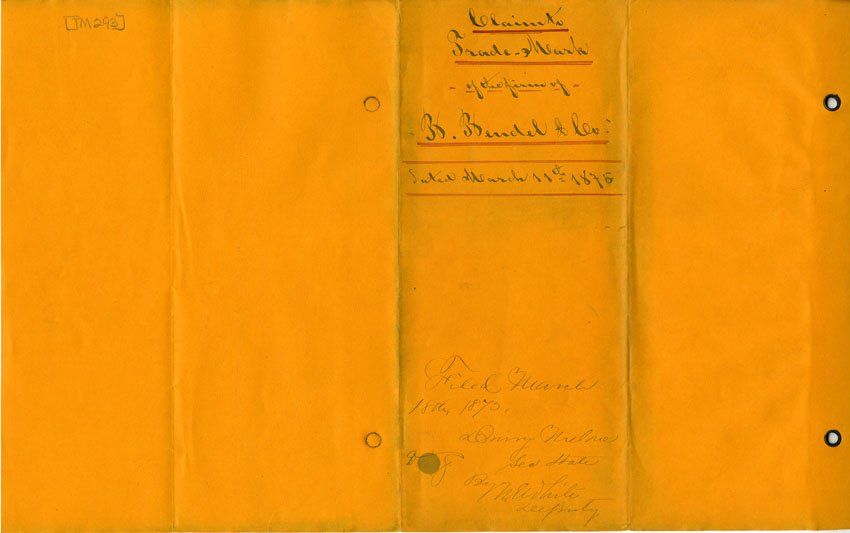 [TM 292]
Claim to
Trade-Mark
- of the firm of -
& Co:
Dated March 11th 1875
Filed March
18th 1875.
Sec State
By
White
Deputy